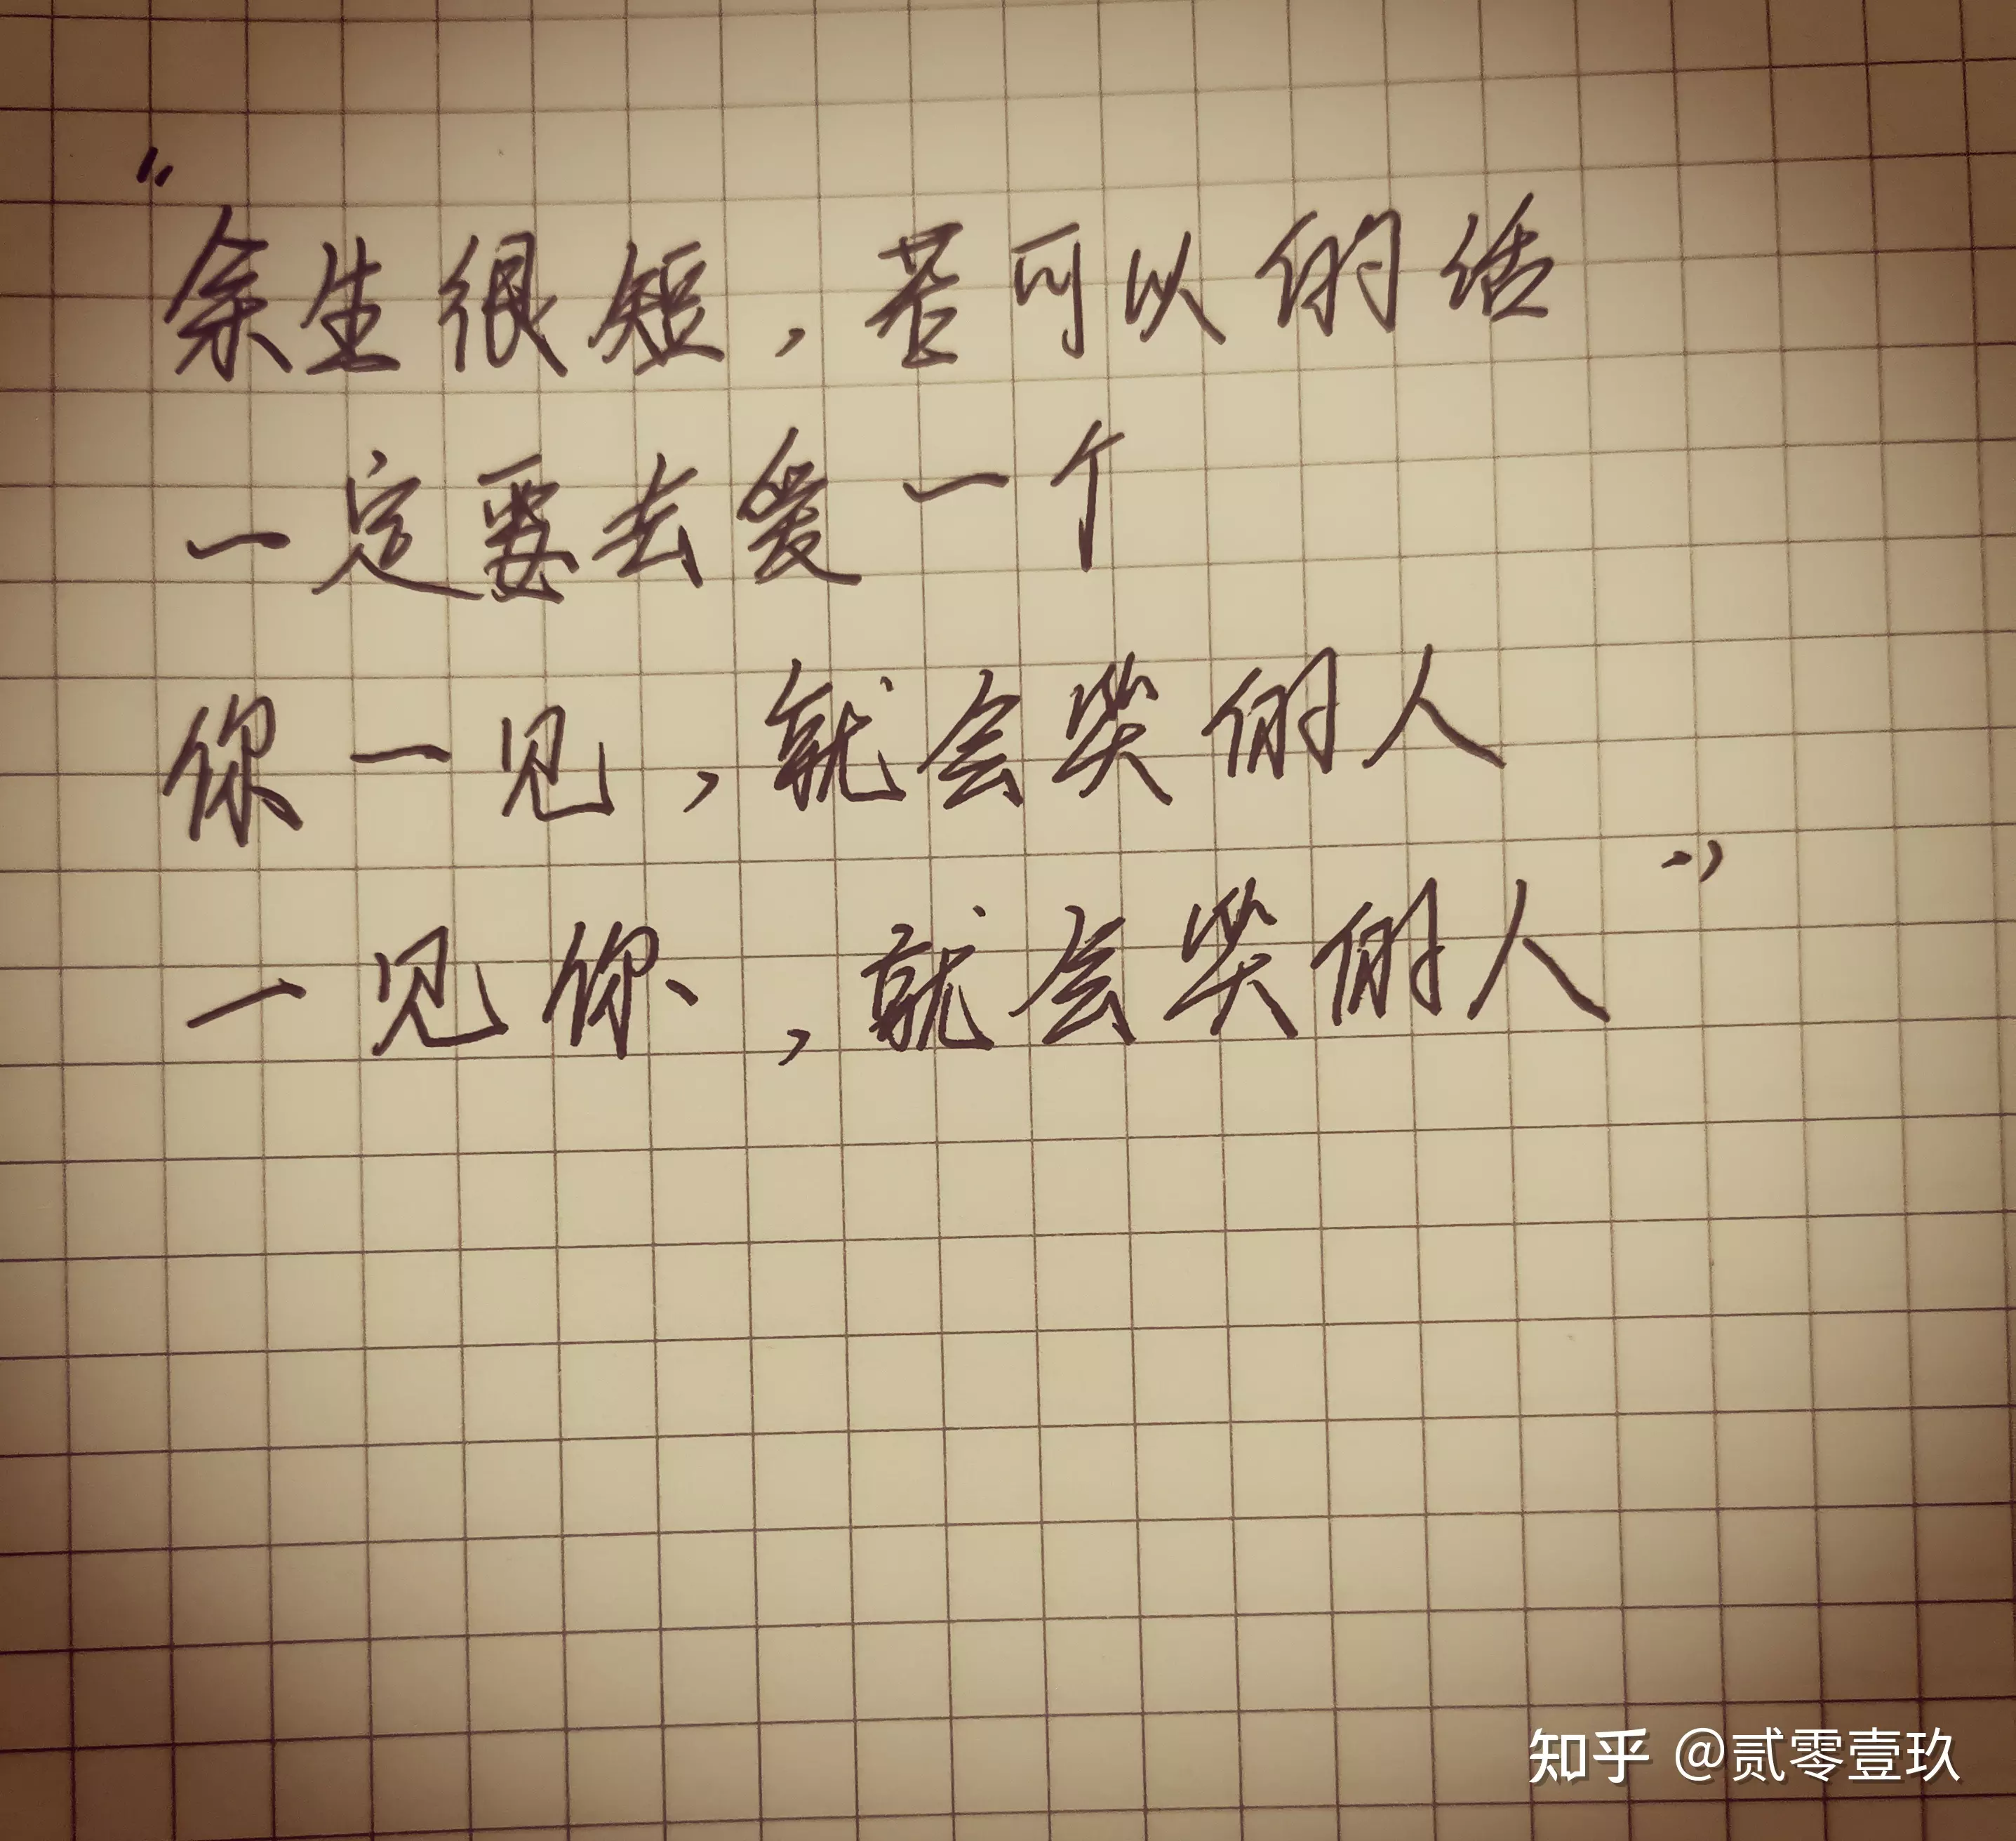 “余生很短，若可以的话
一定要去爱一个
你一见，就会笑的人
一见你，就会笑的人”
知乎 @贰零壹玖